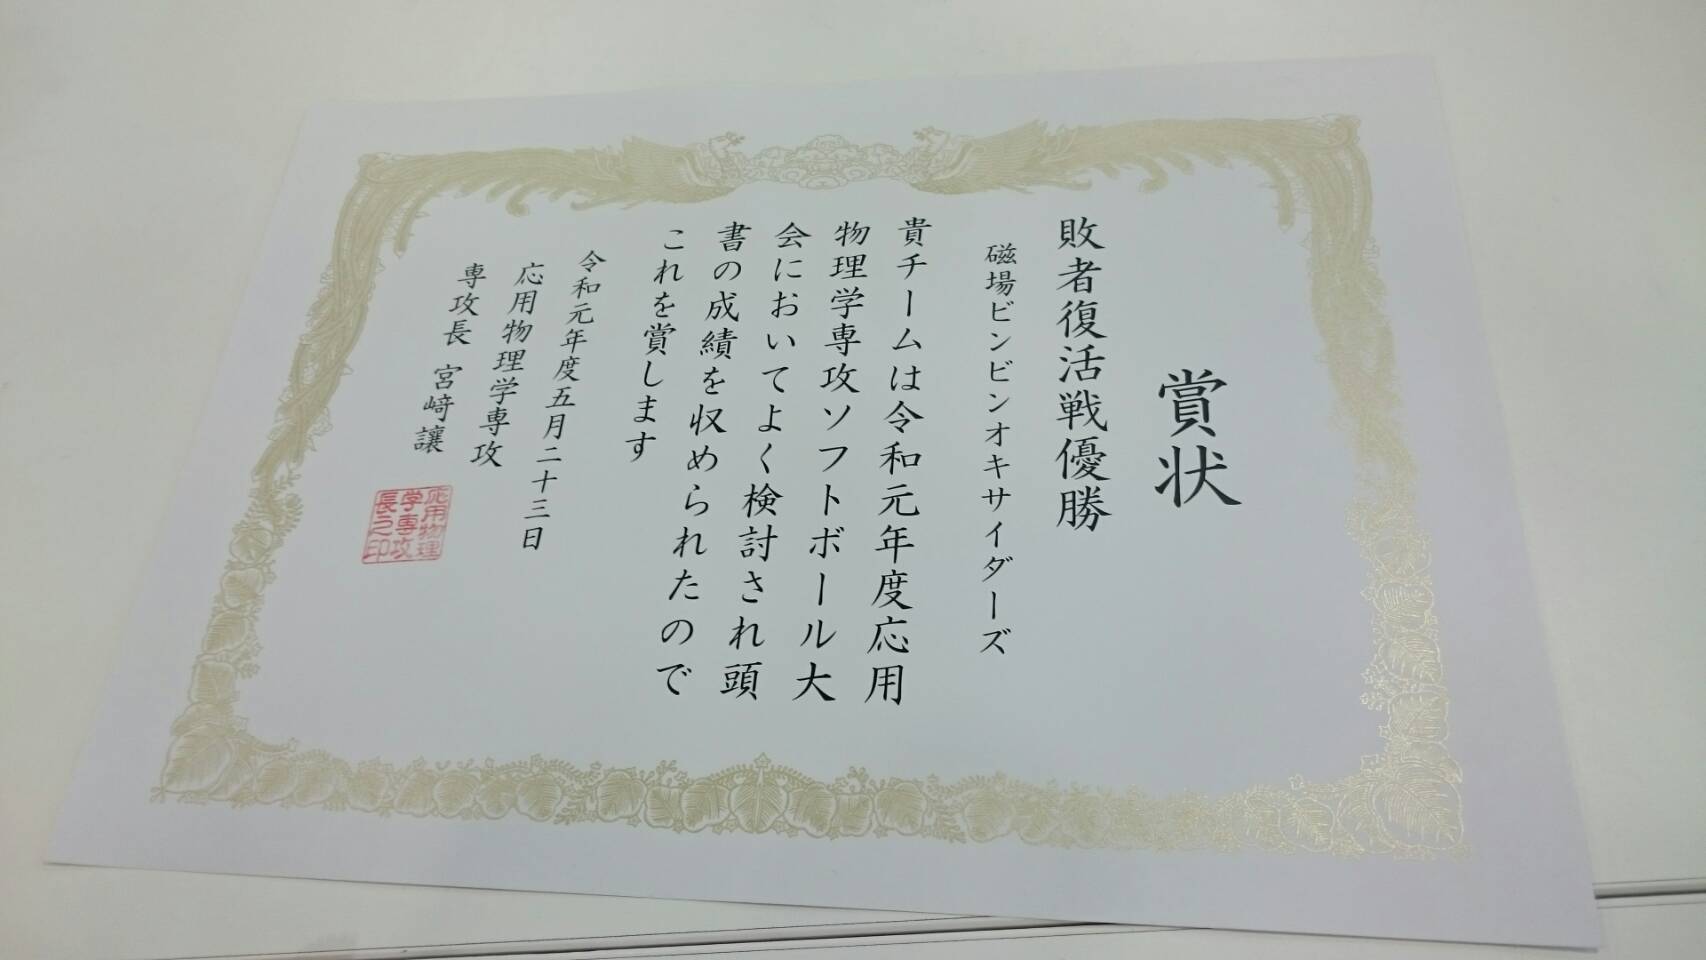 賞状
敗者復活戦優勝
磁場ビンビンオキサイダーズ
貴チームは令和元年度応用
物理学専攻ソフトボール大
会においてよく検討され頭
書の成績を収められたので
これを賞します
令和元年度五月二十三日
応用物理学専攻
専攻長 宮﨑讓
応用物理
学専攻
長之印